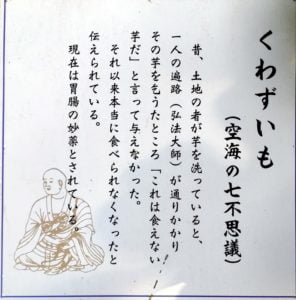 くわずいも
(空海の七不思議)
昔、土地の者が芋を洗っていると、
一人の遍路(弘法大師)が通りかかり
その芋を乞うたところ「これは食えない
芋だ」と言って与えなかった。
それ以来本当に食べられなくなったと
伝えられている。
現在は胃腸の妙薬とされている。